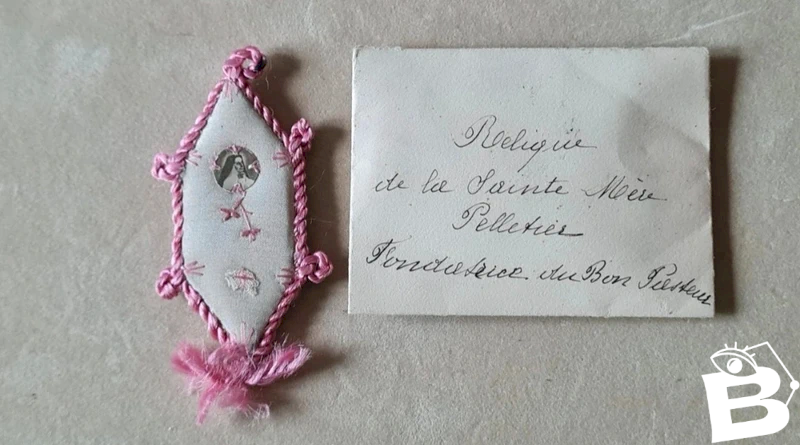 Relique
de la Sainte Mère
Pelletier
Fondatrice du Bon Pasteur
B